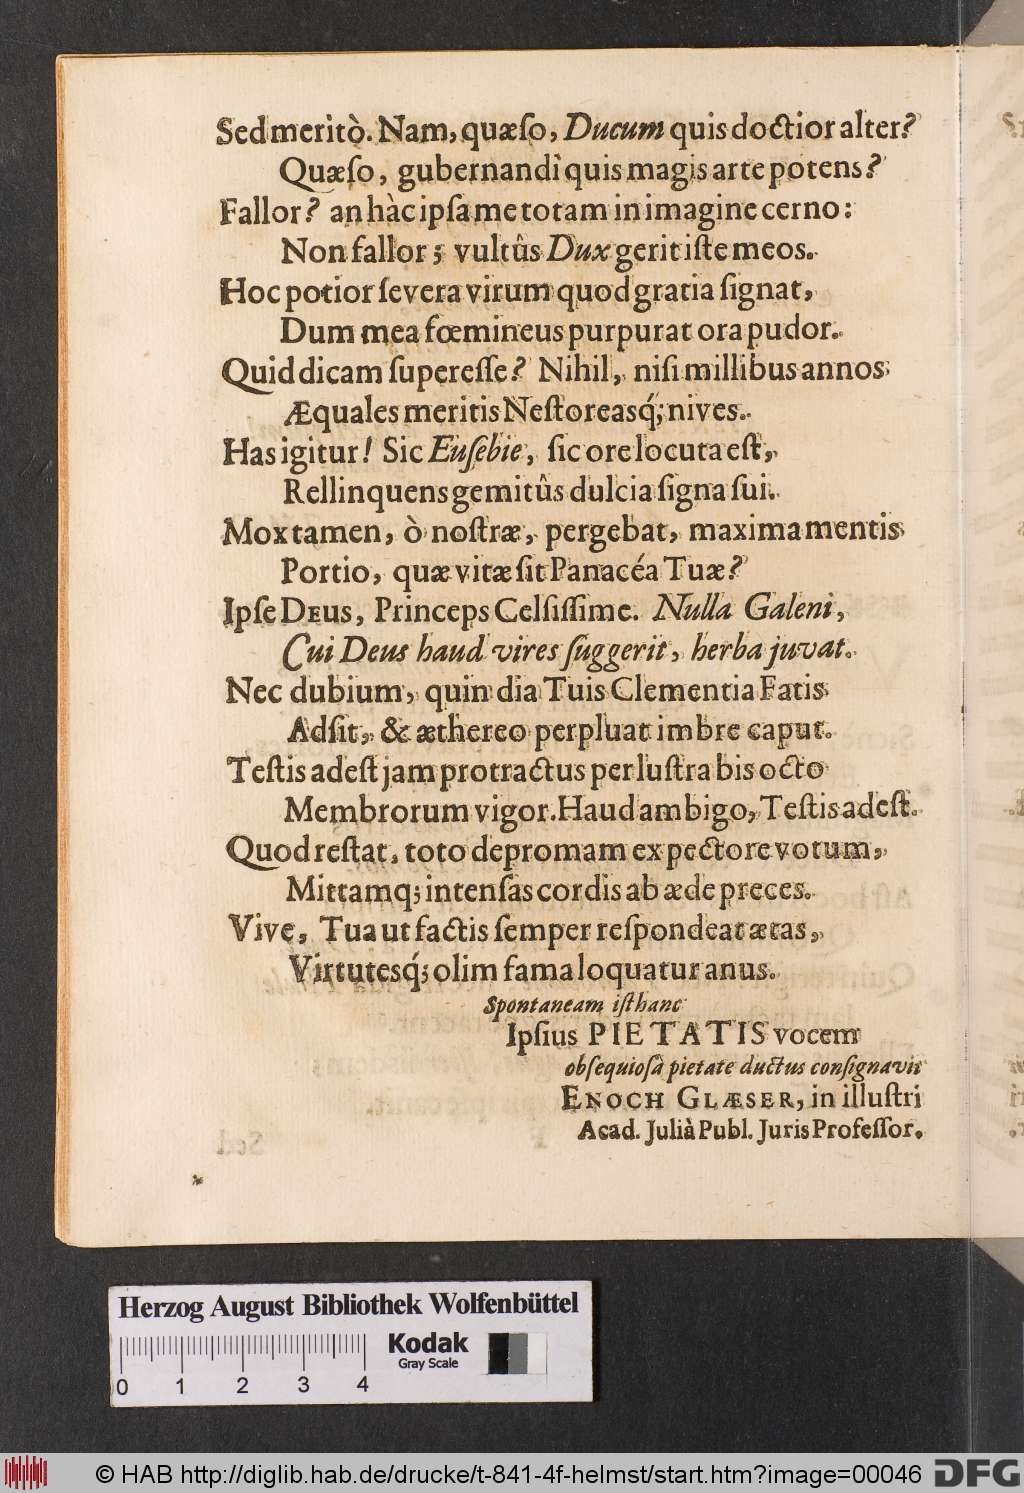 Sed meritò. Nam, quæſo, Ducum quis doctior alter?
Quæſo, gubernandì quis magis arte potens?
Fallor? an hàc ipſa me totam in imagine cerno:
Non fallor; vultûs Dux gerit iſte meos.
Hoc potior ſevera virum quod gratia ſignat,
Dum mea fœmineus purpurat ora pudor.
Quid dicam ſupereſſe? Nihil, niſi millibus annos
Æquales meritis Neſtoreasq́; nives.
Has igitur! Sic Euſebie, ſic ore locuta eſt,
Rellinquens gemitûs dulcia ſigna ſui.
Mox tamen, ò noſtræ, pergebat, maxima mentis
Portio, quæ vitæ ſit Panacéa Tuæ?
Ipſe Deus, Princeps Celſiſſime. Nulla Galeni,
Cui Deus haud vires ſuggerit, herba juvat.
Nec dubium, quin dia Tuis Clementia Fatis
Adſit, & æthereo perpluat imbre caput.
Teſtis adeſt jam protractus per luſtra bis octo
Membrorum vigor. Haud ambigo, Teſtis adeſt.
Quod reſtat, toto depromam ex pectore votum,
Mittamq; intenſas cordis ab æde preces.
Vive, Tua ut factis ſemper reſpondeat ætas,
Virtutesq́; olim fama loquatur anus.
Spontaneam iſthanc
Ipſius PIETATIS vocem
obſequioſâ pietate ductus conſignavit
Enoch Glæser, in illuſtri
Acad. Juliâ Publ. Juris Profeſſor.
Herzog August Bibliothek Wolfenbüttel
Kodak
Gray Scale
0 1 2 3 4
© HAB http://diglib.hab.de/drucke/t-841-4f-helmst/start.htm?image=00046
DFG